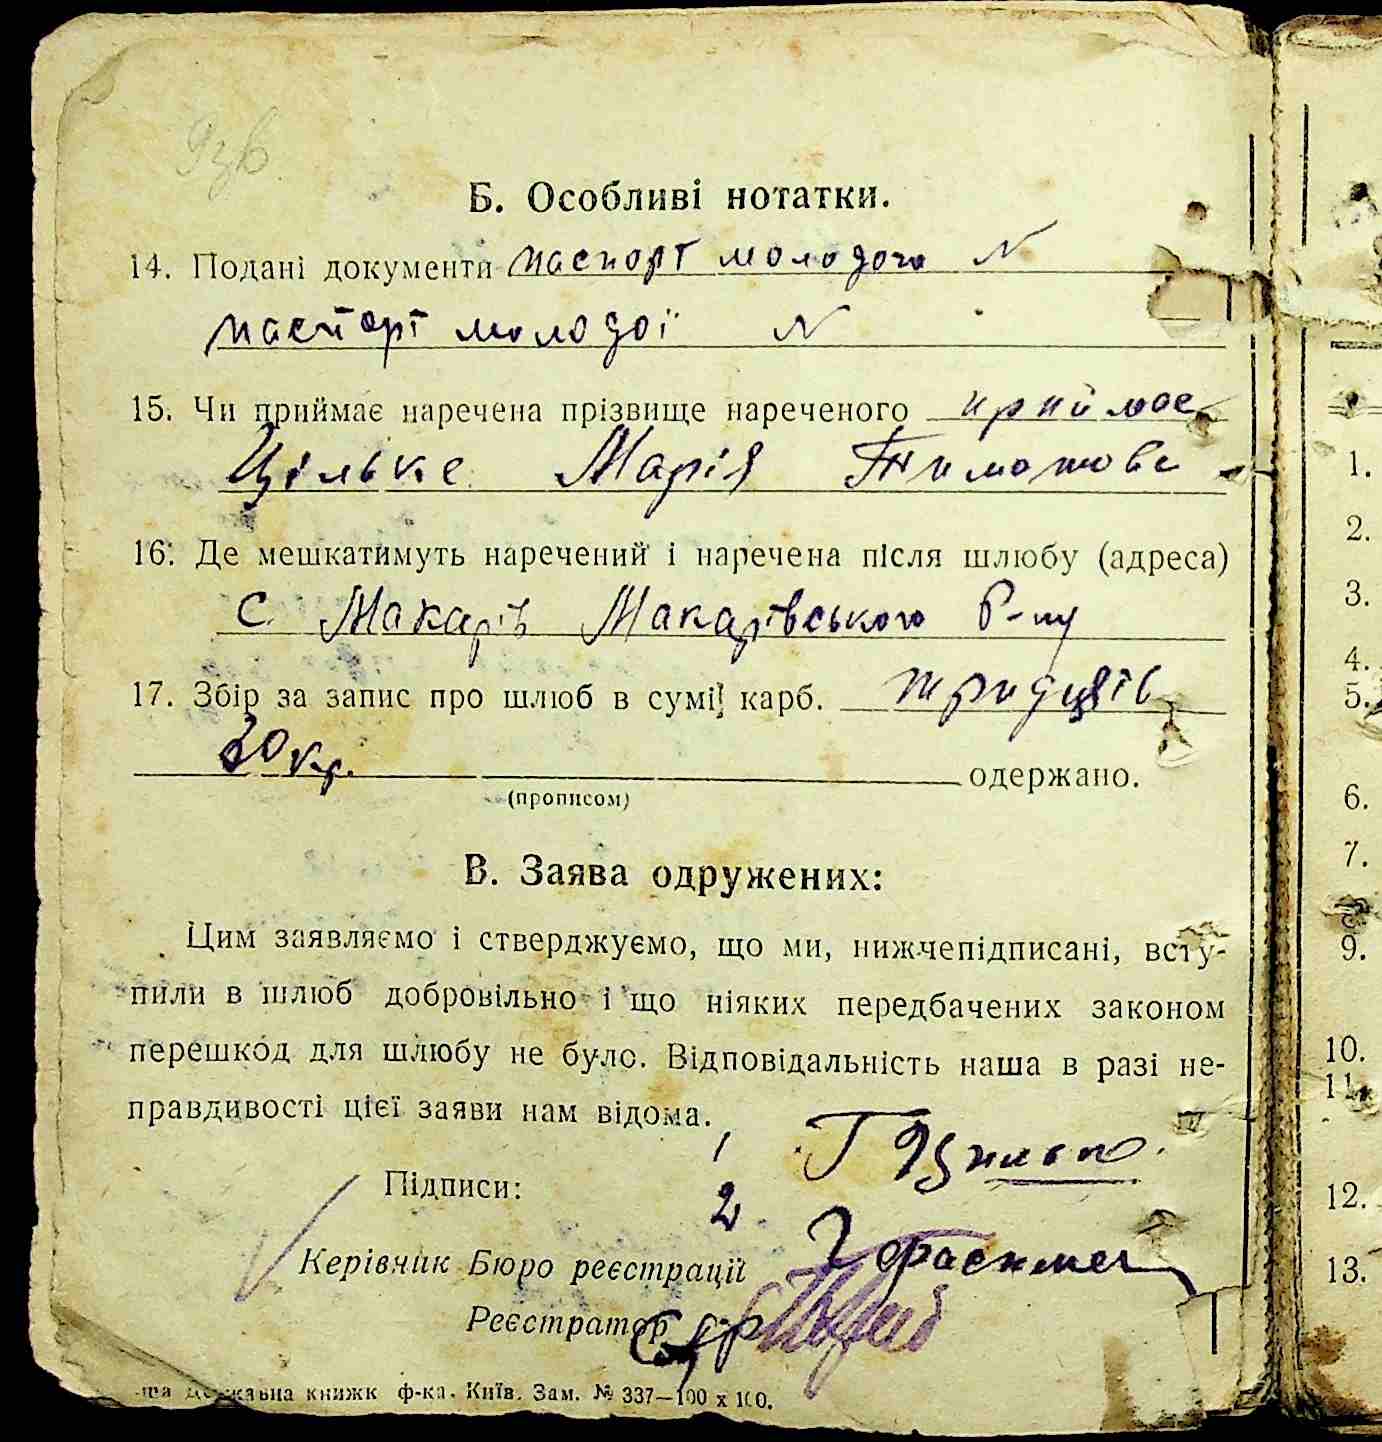 Б. Особливі нотатки.
14. Подані документи паспорт молодого N
паспорт молодої N
15. Чи приймає наречена прізвище нареченого приймає
Цільке Марія Тимотові
16. Де мешкатимуть наречений і наречена після шлюбу (адреса)
с. Макарів Макарівського р-ну
17. Збір за запис про шлюб в сумі карб. тридцять
30 кр. одержано.
(прописом)
В. Заява одружених:
Цим заявляємо і стверджуємо, що ми, нижчепідписані, всту-
пили в шлюб добровільно і що ніяких передбачених законом
перешкод для шлюбу не було. Відповідальність наша в разі не-
правдивості цієї заяви нам відома.
1
Підписи:
2
Керівник Бюро реєстрації
Реєстратор
Державна книжк ф-ка. Київ. Зам. № 337—100 х 100.
1.
2.
3.
4.
5.
6.
7.
9.
10.
11.
12.
13.